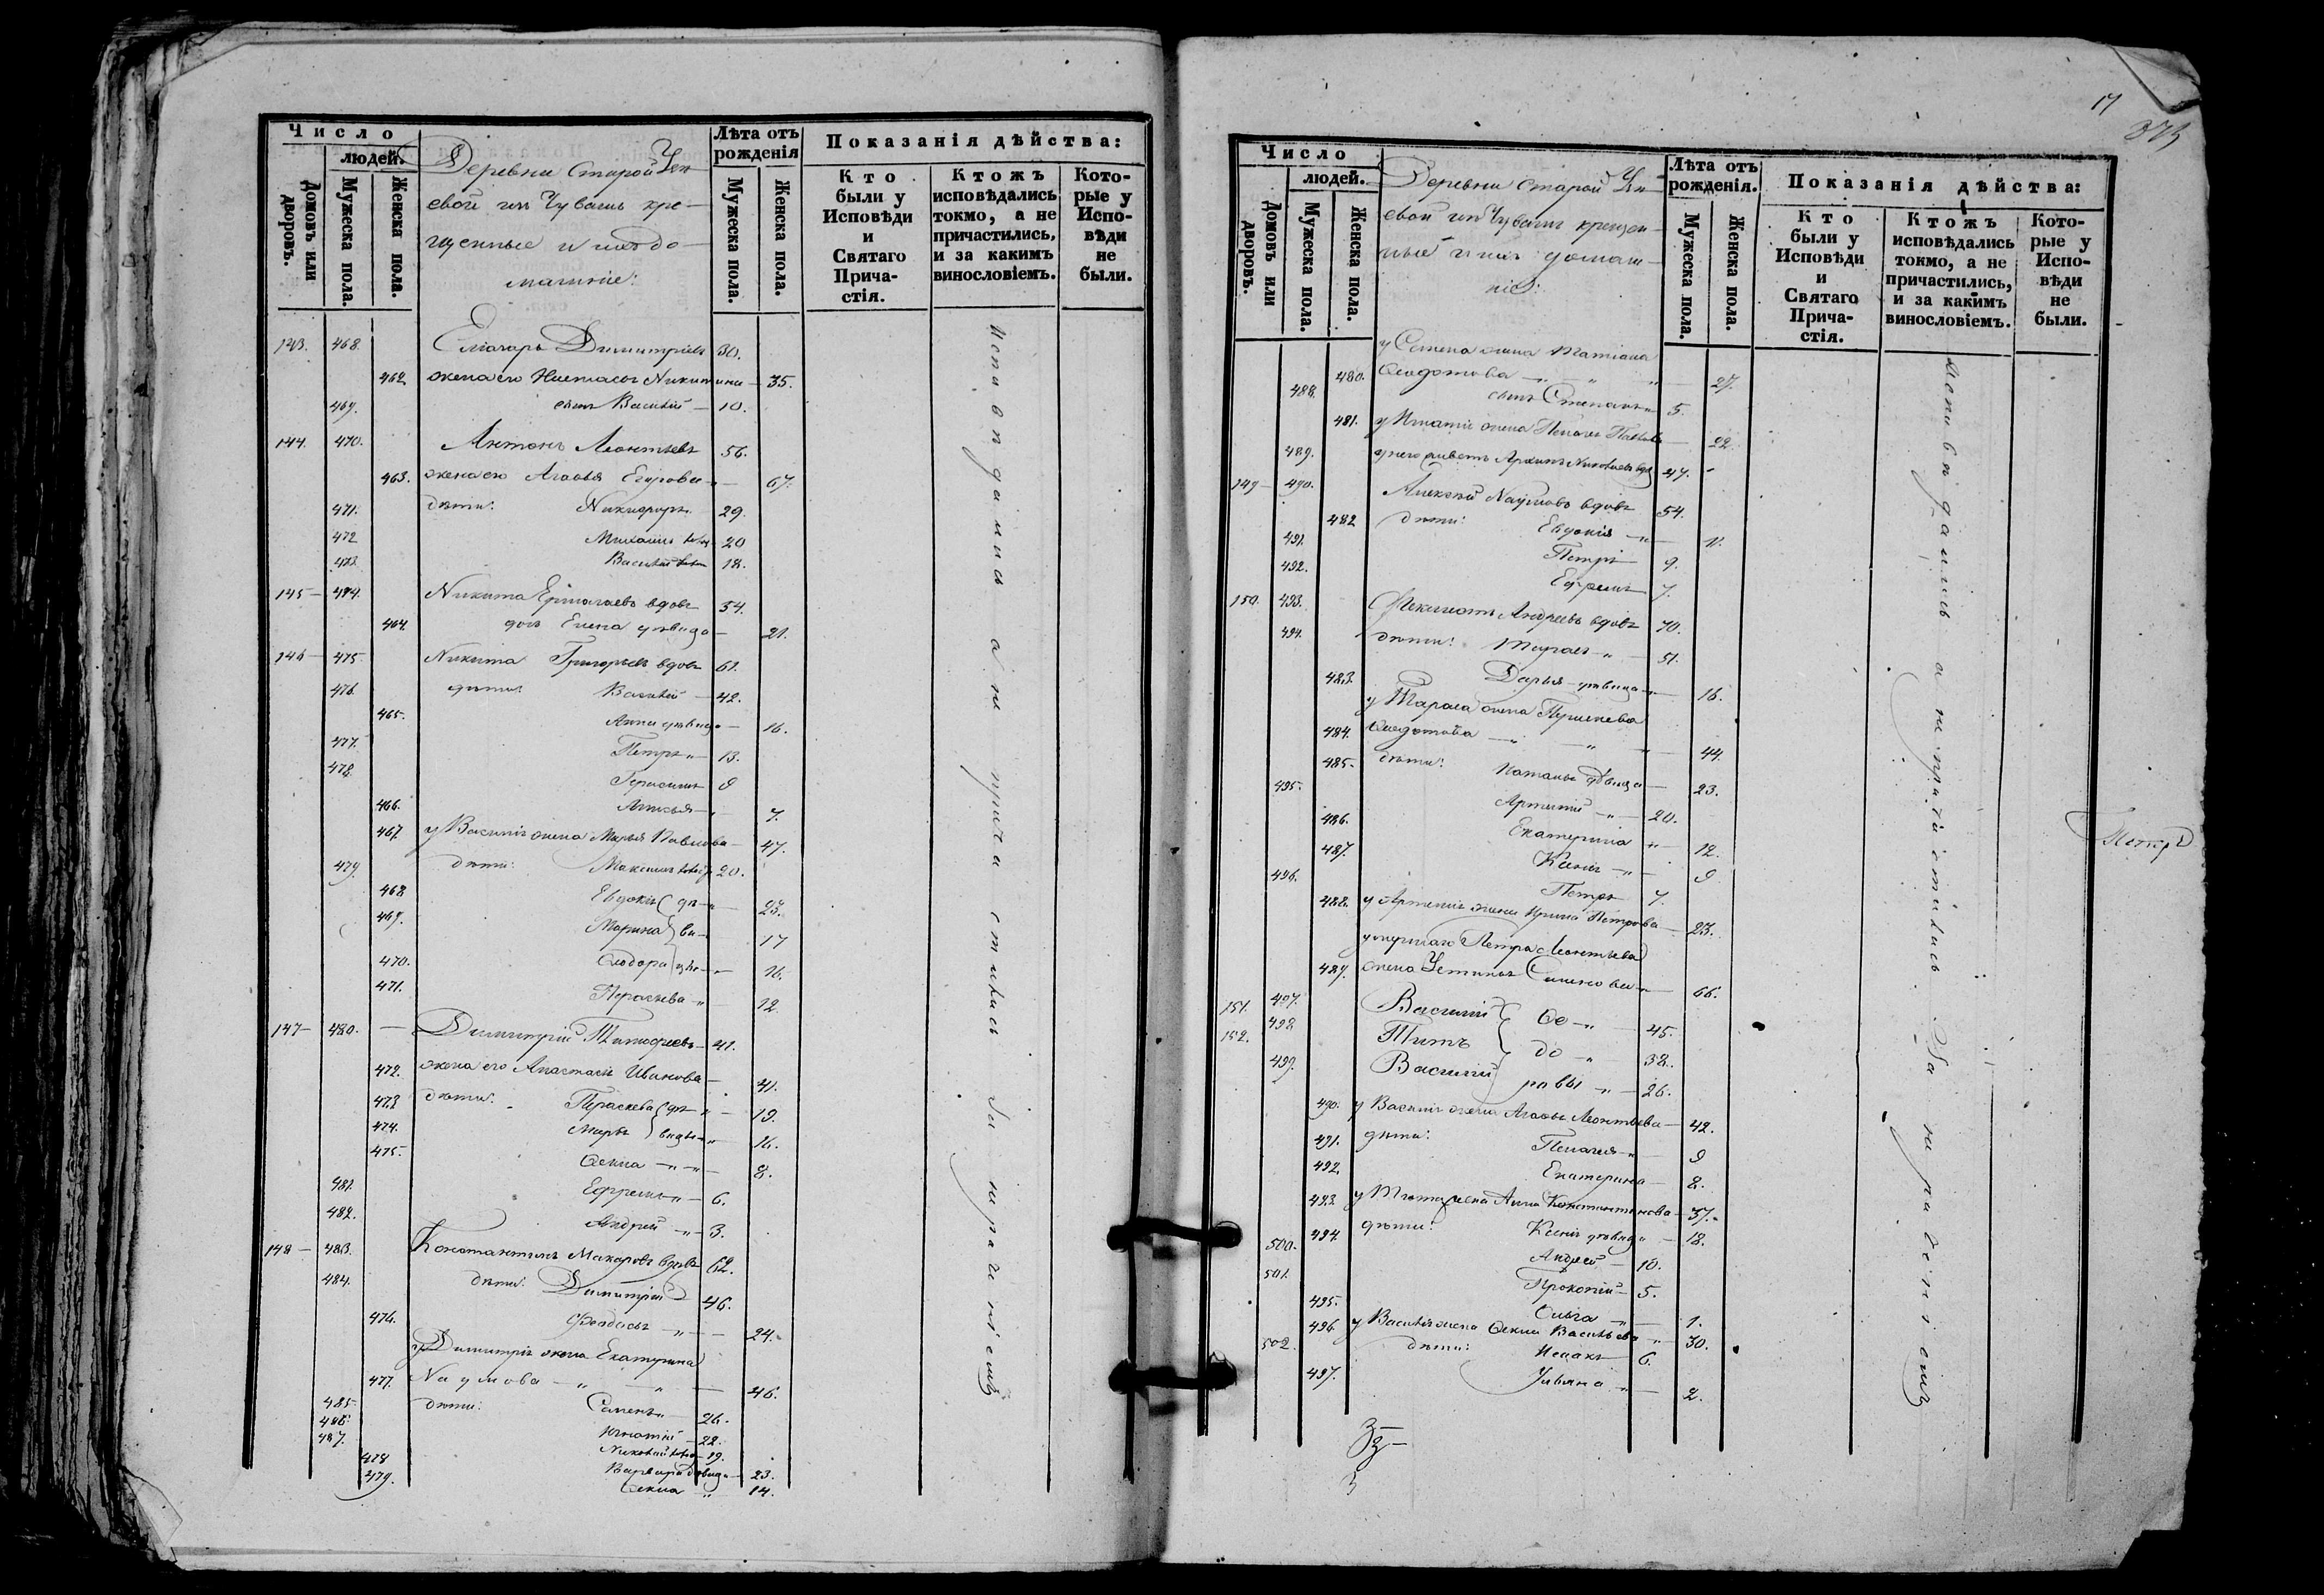 Число
людей.
Домовъ или дворовъ.
Мужеска пола.
Женска пола.
Деревни Старой
евой изъ Чувашъ кре-
щенные и ихъ до-
машніе:
Лѣта отъ рожденія
Мужеска пола.
Женска пола.
Показанія дѣйства:
Кто были у Исповѣди и Святаго Причастія.
Ктожъ исповѣдались токмо, а не причастились, и за какимъ винословіемъ.
Которые у Исповѣди не были.
143. 468. Димитріевъ 30.
462. жена его Никитина — 35.
469. сынъ Василій — 10.
144. 470. Антонъ Леонтьевъ 56.
463. жена его Агафья Егорова — 67.
471. дѣти: Никифоръ 29.
472 Михаилъ 20
473 Василій 18.
145 — 474. Никита Ермолаевъ вдовъ 54.
464. дочь Елена дѣвица — 21.
146 — 475 Никита Григорьевъ вдовъ 61.
476. дѣти: Василій — 42.
465. Анна дѣвица — 16.
477. Петръ „ — 13.
478. Герасимъ 9
466. Анисья — 7.
467. у Василія жена Марья Павлова — 47.
479. дѣти: Максимъ 20.
468. Евдокія дѣ — 23.
469. Марина ви — 17
470. Ѳеодора цы — 16.
471. Параскева „ 12
147 — 480. — Димитрій Тимофеевъ — 41.
472. жена его Анастасія Иванова — 41.
473 дѣти: Параскева дѣ „ — 19.
474. Марья вицы „ 16.
475. Ѳекла — „ — 8.
481. Ефремъ „ — 6.
482. Андрей „ — 3.
148 — 483. Константинъ Макаровъ вдовъ 62.
484. дѣти: Димитрій 46.
476. Ѳеодосья „ — 24.
у Димитрія жена Екатерина
477. Наумова — „ — „ — 46.
485 дѣти: Семенъ „ 26.
486. Игнатій — 22.
487. Николай 19.
478 Варвара дѣвица — 23.
479. Ѳекла „ — 14.
исповѣдались а не причастились за нераченіемъ
17
373
Число
людей.
Домовъ или дворовъ.
Мужеска пола.
Женска пола.
Деревни Старой
евой изъ Чувашъ крещен-
ные и ихъ домаш-
ніе:
Лѣта отъ рожденія.
Мужеска пола.
Женска пола.
Показанія дѣйства:
Кто были у Исповѣди и Святаго Причастія.
Ктожъ исповѣдались токмо, а не причастились, и за какимъ винословіемъ.
Которые у Исповѣди не были.
у Семена жена Татіана
480. Ѳедотова — „ „ „ — 27.
488. сынъ Степанъ 5.
481. у Игнатія жена Павлова 22.
489. у него живетъ Архипъ Николаевъ 47.
149 — 490. Алексей Наумовъ вдовъ 54.
482 дѣти: Евдокія — „ — 11.
491. Петръ 9.
492. Ефремъ 7.
150. 493. Андреевъ вдовъ 70.
494. дѣти: Тарасъ „ — 51.
483. Дарья дѣвица — 16.
у Тараса жена Параскева
484. Ѳедотова — „ — „ „ — 44.
485. дѣти: Наталья дѣвица — 23.
495. Артемій — „ — 20.
486. Екатерина „ — 12.
487. Ксенія — „ — 9
496. Петръ 7.
488. у Артемія жена Ирина Петрова — 23.
умершаго Петра Леонтьева
489. жена Устинья Семенова — 66.
151. 497. Василій Ѳе — „ — 45.
152. 498 Титъ до — „ — 38.
499. Василій ровы „ — 26.
490. у Василія жена Агафья Леонтьева — 42.
491. дѣти: Пелагея „ — 9
492. Екатерина — 8.
493. у Тита жена Анна Константинова — 37.
494. дѣти: Ксенія дѣвица — 18.
500. Андрей — 10.
501. Прокопій — 5.
495. Ольга „ — 1.
496. у Василія жена Ѳекла Васильева „ 30.
502. дѣти: Исаакъ 6.
497. Ульяна „ — 2.
исповѣдались а не причастились за нераченіемъ
Петръ